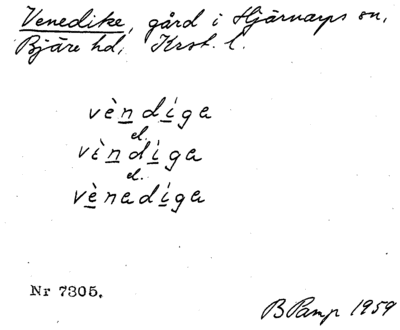 Venedike, gård i Hjärnarps sn,
Bjäre hd, Krst. l.
vèndíga
el.
vìndíga
el.
vènadíga
Nr 7305.
B Pamp 1959